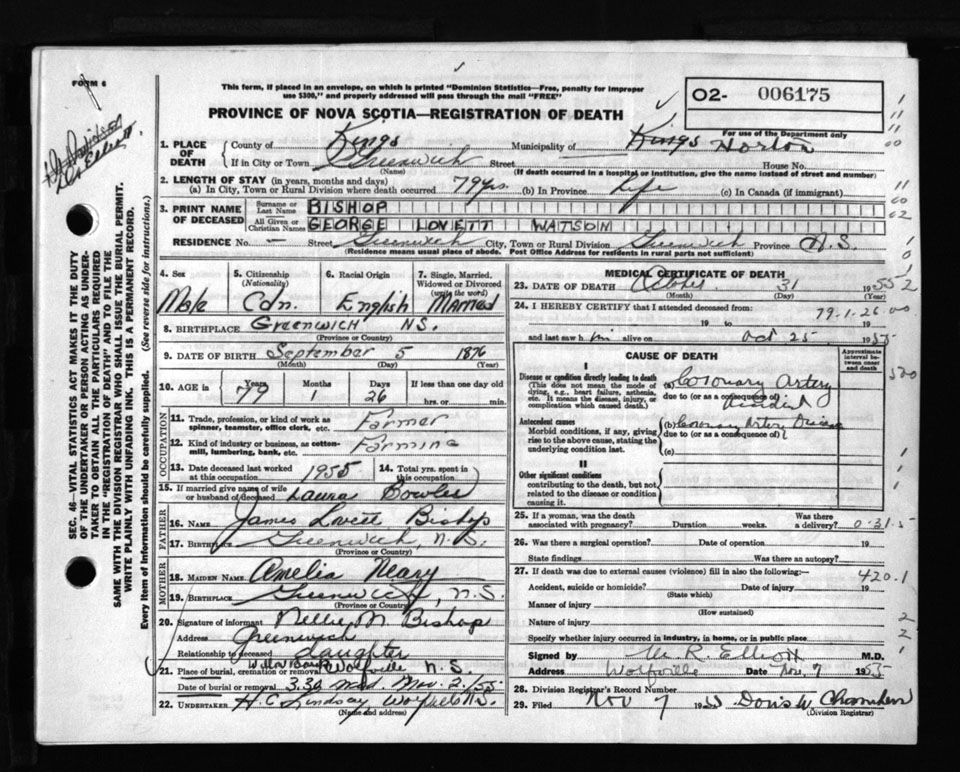 FORM 6
This form, if placed in an envelope, on which is printed "Dominion Statistics—Free, penalty for improper
use $300," and properly addressed will pass through the mail "FREE"
PROVINCE OF NOVA SCOTIA—REGISTRATION OF DEATH
O2- 006175
For use of the Department only
1. PLACE OF DEATH
County of Kings Municipality of Kings Horton
If in City or Town Greenwich Street House No.
(Name) (If death occurred in a hospital or institution, give the name instead of street and number)
2. LENGTH OF STAY (in years, months and days)
(a) In City, Town or Rural Division where death occurred 79 yrs. (b) In Province Life (c) In Canada (if immigrant)
3. PRINT NAME OF DECEASED
Surname or Last Name BISHOP
All Given or Christian Names GEORGE LOVETT WATSON
RESIDENCE No. — Street Greenwich City, Town or Rural Division Greenwich Province N.S.
(Residence means usual place of abode. Post Office Address for residents in rural parts not sufficient)
4. Sex 5. Citizenship (Nationality) 6. Racial Origin 7. Single, Married, Widowed or Divorced (write the word)
Male Cdn. English Married
8. BIRTHPLACE Greenwich NS.
(Province or Country)
9. DATE OF BIRTH September 5 1876
(Month) (Day) (Year)
10. AGE in Years Months Days If less than one day old
79 1 26 hrs. or min.
OCCUPATION
11. Trade, profession, or kind of work as spinner, teamster, office clerk, etc. Farmer
12. Kind of industry or business, as cotton-mill, lumbering, bank, etc. Farming
13. Date deceased last worked at this occupation 1955 14. Total yrs. spent in this occupation
15. If married give name of wife or husband of deceased Laura Cowles
FATHER
16. NAME James Lovett Bishop
17. BIRTHPLACE Greenwich, N.S.
(Province or Country)
MOTHER
18. MAIDEN NAME Amelia Neary
19. BIRTHPLACE Greenwich, N.S.
(Province or Country)
20. Signature of informant Nellie M Bishop
Address Greenwich
Relationship to deceased daughter
21. Place of burial, cremation or removal Wolfville N.S.
Date of burial or removal 3.30 Wed. Nov. 2./55
22. UNDERTAKER H.C. Lindsay Wolfville N.S.
(Name and address)
MEDICAL CERTIFICATE OF DEATH
23. DATE OF DEATH October 31 1955
(Month) (Day) (Year)
24. I HEREBY CERTIFY that I attended deceased from:
79-1-26
19 to 19
and last saw him alive on Oct 25 1955
CAUSE OF DEATH
Approximate interval between onset and death
I
Disease or condition directly leading to death
(This does not mean the mode of dying, e.g., heart failure, asthenia, etc. It means the disease, injury, or complication which caused death.)
(a) Coronary Artery
due to (or as a consequence of)
Accident
Antecedent causes
Morbid conditions, if any, giving rise to the above cause, stating the underlying condition last.
(b) Coronary Artery Disease
due to (or as a consequence of)
(c)
II
Other significant conditions
contributing to the death, but not related to the disease or condition causing it.
25. If a woman, was the death associated with pregnancy? Duration weeks. Was there a delivery?
26. Was there a surgical operation? Date of operation 19
State findings Was there an autopsy?
27. If death was due to external causes (violence) fill in also the following:-
420.1
Accident, suicide or homicide? Date of injury 19
(State which)
Manner of injury
(How sustained)
Nature of injury
Specify whether injury occurred in industry, in home, or in public place
Signed by M. R. Elliott M.D.
Address Wolfville Date Nov. 7 1955
28. Division Registrar's Record Number
29. Filed Nov 7 1955 Doris W Chambers
(Division Registrar)
SEC. 46—VITAL STATISTICS ACT MAKES IT THE DUTY
OF THE UNDERTAKER OR PERSON ACTING AS UNDER-
TAKER TO OBTAIN ALL THE PARTICULARS REQUIRED
IN THE "REGISTRATION OF DEATH" AND TO FILE THE
SAME WITH THE DIVISION REGISTRAR WHO SHALL ISSUE THE BURIAL PERMIT.
WRITE PLAINLY WITH UNFADING INK. THIS IS A PERMANENT RECORD.
Every item of information should be carefully supplied. (See reverse side for instructions.)